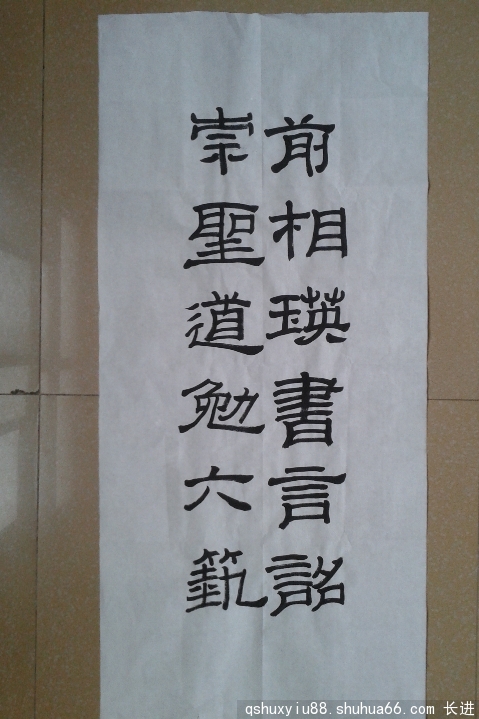 前相瑛書言詔
崇聖道勉六蓺
qshuxyiu88.shuhua66.com 长进